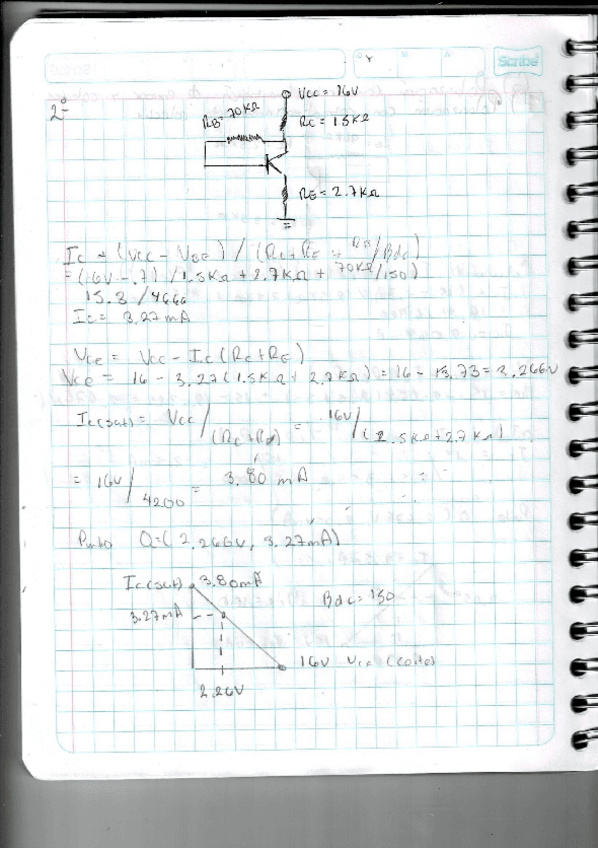 Scribe
2º
Vcc = 16V
RB = 70KΩ
RC = 1.5KΩ
RE = 2.7KΩ
Ic = (Vcc - VBE) / (Rc + RE + RB/Bdc)
= (16V - .7) / 1.5KΩ + 2.7KΩ + 70KΩ/150)
15.3 / 4666
Ic = 3.27mA
Vce = Vcc - Ic (Rc + RE)
Vce = 16 - 3.27 (1.5KΩ + 2.7KΩ) = 16 - 13.73 = 2.266V
Ic(sat) = Vcc / = 16V /
= 16V / 4200 = 3.80 mA
Punto Q = (2.266V, 3.27mA)
Ic(sat) 3.80mA
3.27mA
Bdc = 150
16V Vce (corte)
2.26V